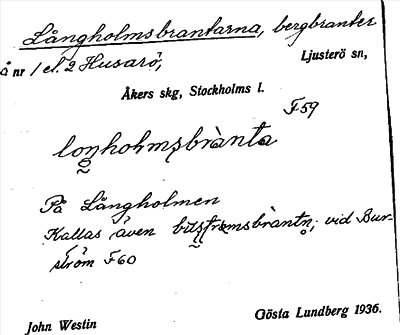 Långholmsbrantarna, bergbranter
å nr 1 el. 2 Husarö, Ljusterö sn,
Åkers skg, Stockholms l.
F59
loŋholmsbrànta
På Långholmen
Kallas även; vid Bur-
ström F60
John Westin Gösta Lundberg 1936.